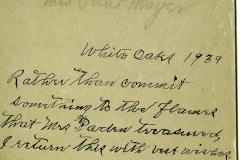 White Oaks 1939
Rather than commit
something to the flames
that Mrs Paden treasured,
I return this with best wishes